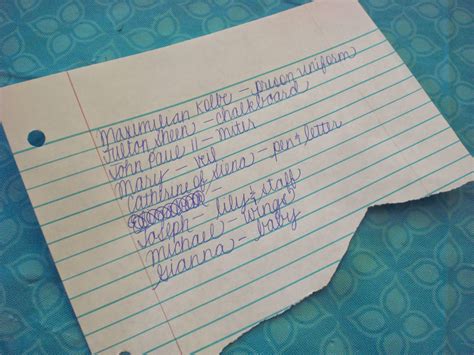 Maximilian Kolbe – prison uniform
Fulton Sheen – chalkboard
John Paul II – miter
Mary – veil
Catherine of Siena – pen & letter
–
Joseph – lily & staff
Michael – wings
Gianna – baby